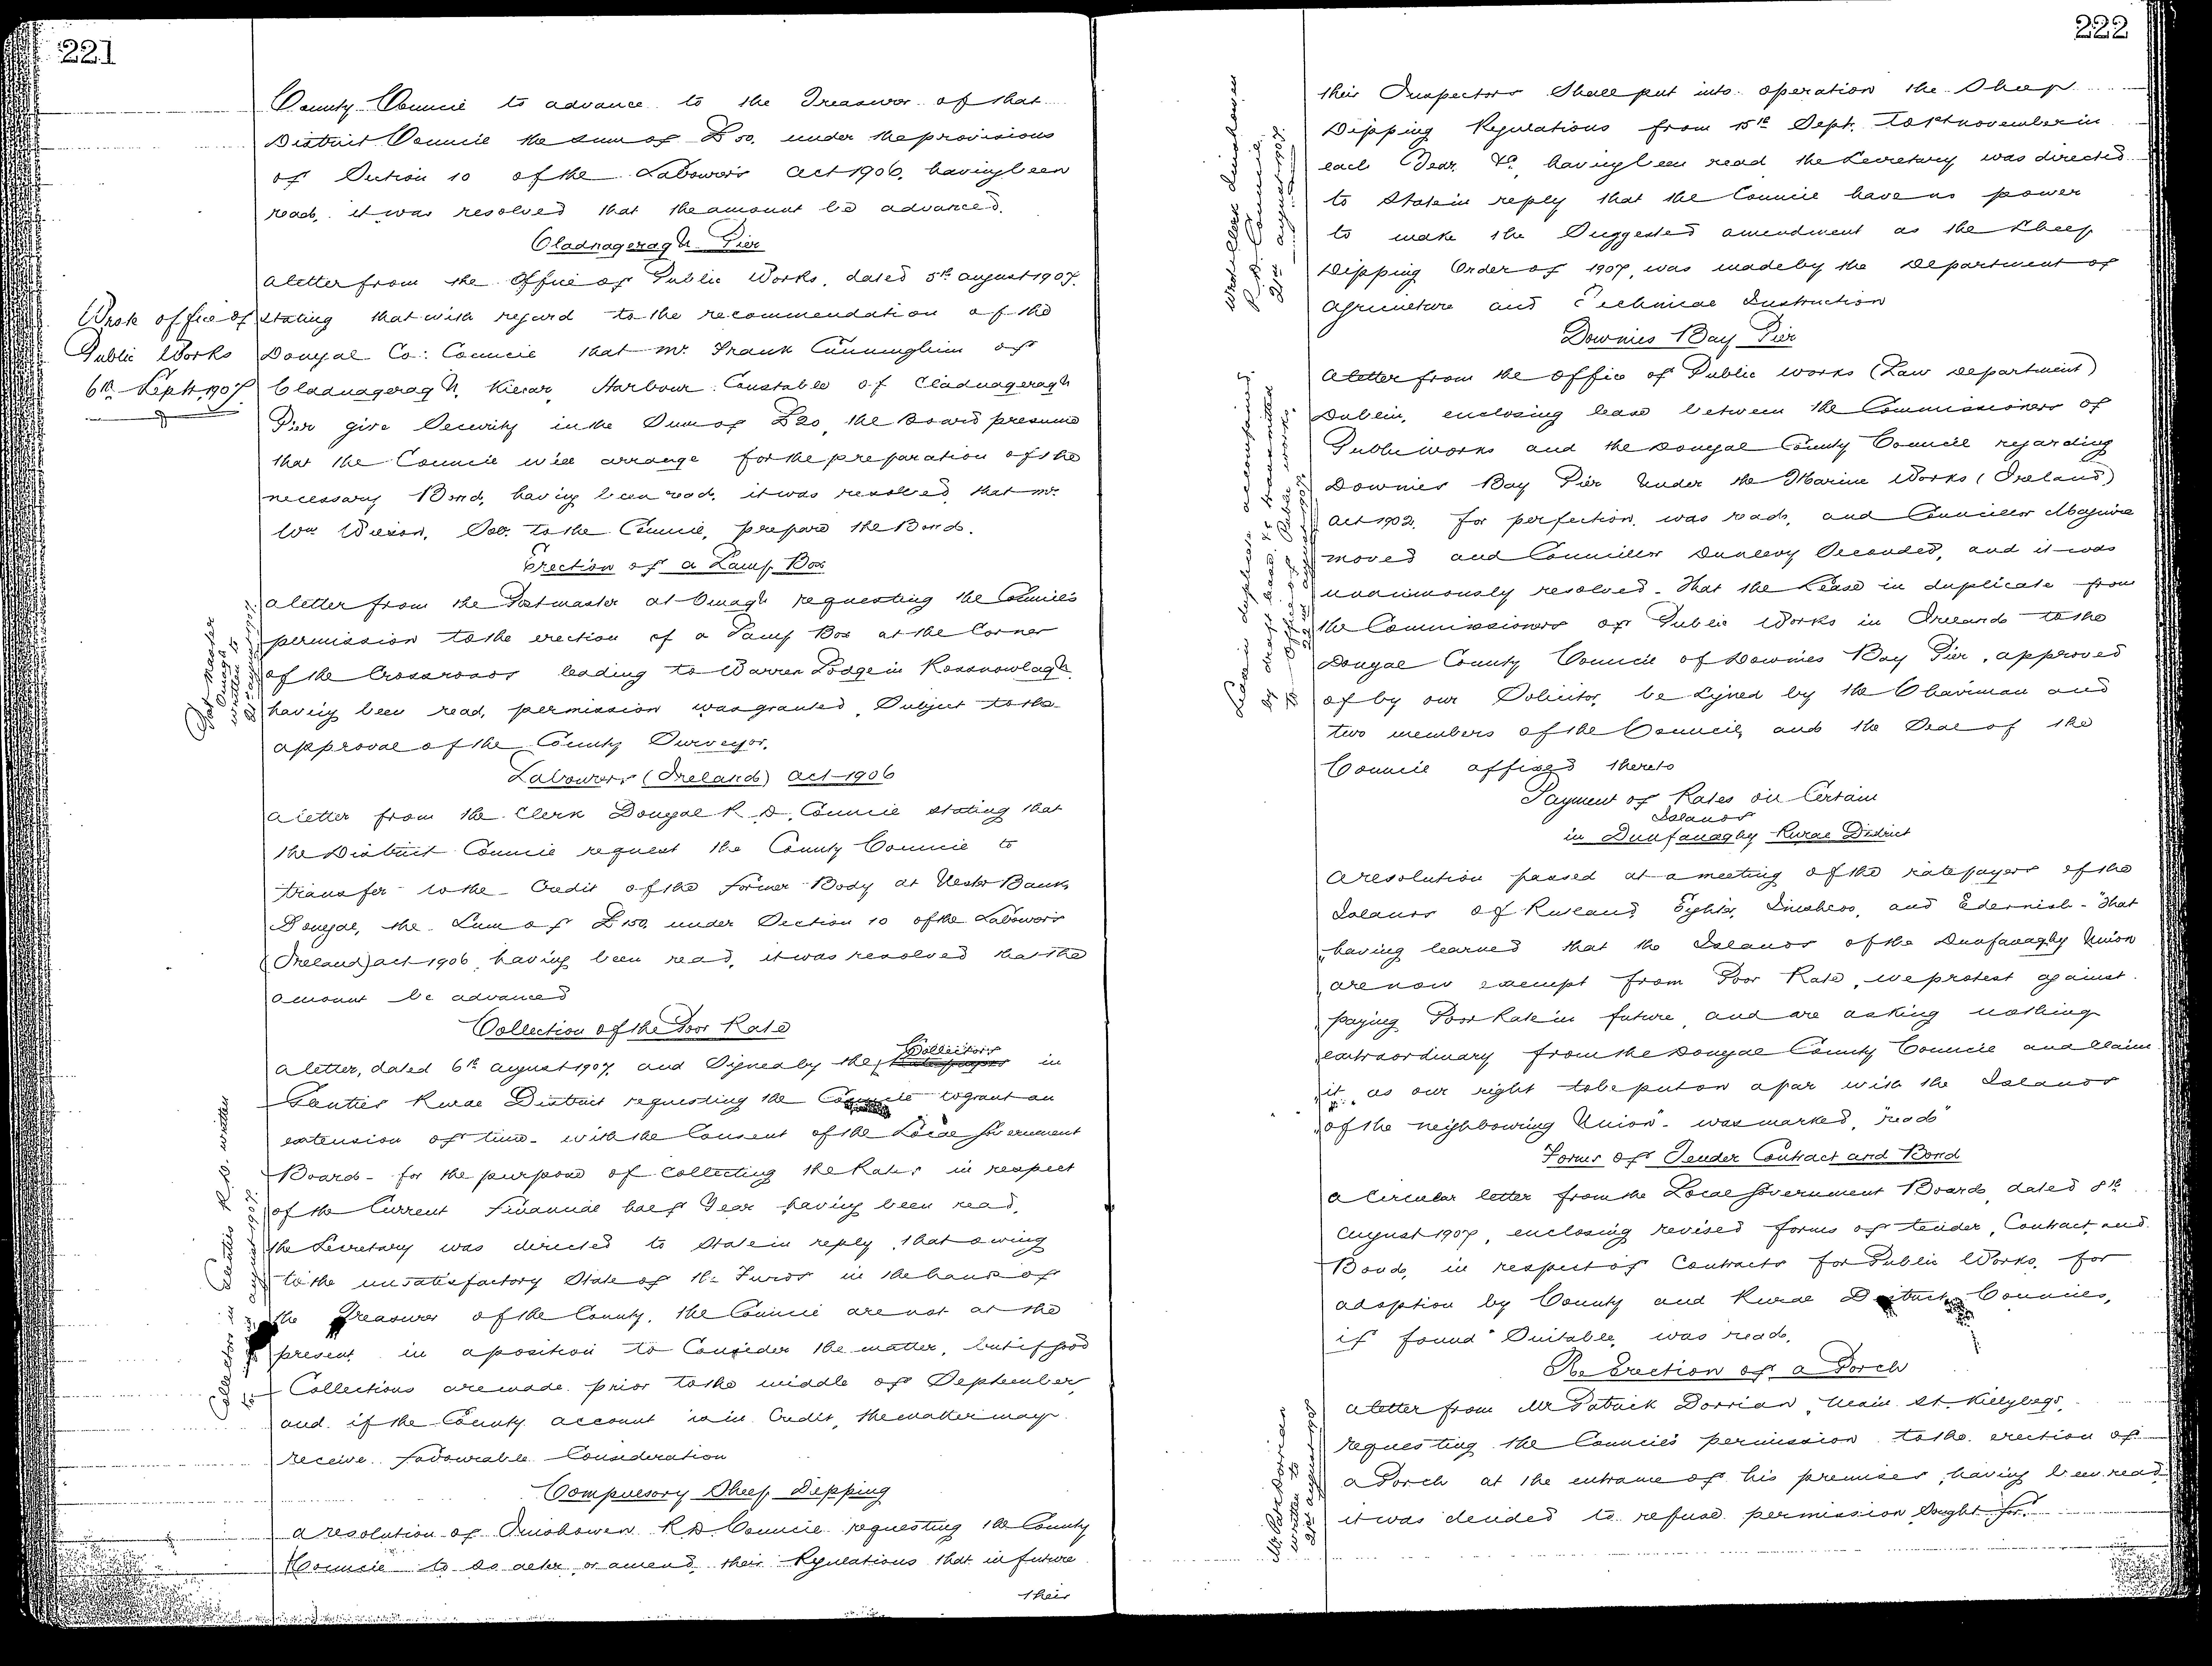 221
County Council to advance to the Treasurer of that
District Council the sum of £50. under the provisions
of Section 10 of the Labourers Act 1906. having been
read, it was resolved that the amount be advanced.
Cladnageragh Pier
A letter from the Office of Public Works, dated 5th August 1907.
stating that with regard to the recommendation of the
Donegal Co: Council that Mr. Frank Cunningham of
Cladnageragh, Kilcar, Harbour Constable of Cladnageragh
Pier give Security in the Sum of £20, the Board presume
that the Council will arrange for the preparation of the
necessary Bond, having been read, it was resolved that Mr.
Wm Wilson, Sec. to the Council, prepare the Bond.
Wrote office of
Public Works
6th Sept. 1907.
Erection of a Lamp Box
A letter from the Postmaster at Omagh requesting the Council's
permission to the erection of a Lamp Box at the Corner
of the Crossroads leading to Warren Lodge in Rossnowlagh
having been read, permission was granted, Subject to the
approval of the County Surveyor.
Post Master
Omagh
written to
21st August 1907.
Labourers (Ireland) Act 1906
A letter from the Clerk Donegal R.D. Council stating that
the District Council request the County Council to
transfer to the Credit of the former Body at Ulster Bank
Donegal, the Sum of £150. under Section 10 of the Labourers
(Ireland) Act 1906, having been read, it was resolved that the
amount be advanced
Collection of the Poor Rate
Collectors
A letter, dated 6th August 1907, and Signed by the Ratepayers in
Glenties Rural District requesting the Council to grant an
extension of time - with the Consent of the Local Government
Board - for the purpose of Collecting the Rates in respect
of the Current Financial half Year having been read,
the Secretary was directed to State in reply, that owing
to the unsatisfactory State of the Funds in the hands of
the Treasurer of the County, the Council are not at the
present in a position to Consider the matter, but if good
Collections are made prior to the middle of September,
and if the County account is in Credit, the matter may
receive favourable Consideration
Collectors in Glenties R.D. written
to August 1907.
Compulsory Sheep Dipping
A resolution of Inishowen R D Council requesting the County
Council to so alter or amend their Regulations that in future
their
222
their Inspectors Shall put into operation the Sheep
Dipping Regulations from 15th Sept. to 1st November in
each Year, &c, having been read the Secretary was directed
to State in reply that the Council have no power
to make the Suggested amendment as the Sheep
Dipping Order of 1907, was made by the Department of
Agriculture and Technical Instruction
Wrote Clerk Inishowen
R.D. Council
21st August 1907.
Downies Bay Pier
A letter from the office of Public works (Law Department)
Dublin, enclosing lease between the Commissioners of
Public works and the Donegal County Council regarding
Downies Bay Pier Under the Marine Works (Ireland)
Act 1902. for perfection, was read, and Councillor Maguire
moved and Councillor Dunlevy Seconded, and it was
unanimously resolved - That the Lease in duplicate from
the Commissioners of Public Works in Ireland to the
Donegal County Council of Downies Bay Pier, approved
of by our Solicitor, be Signed by the Chairman and
two members of the Council, and the Seal of the
Council affixed thereto
Lease in duplicate accompanied
by draft lease &c transmitted
to Office of Public Works.
Payment of Rates on Certain
Islands
in Dunfanaghy Rural District
A resolution passed at a meeting of the ratepayers of the
Islands of Rutland and Edernish - "That
"having learned that the Islands of the Dunfanaghy Union
"are now exempt from Poor Rate, we protest against
"paying Poor Rate in future, and are asking nothing
"extraordinary from the Donegal County Council and Claim
"it as our right to be put on a par with the Islands
"of the neighbouring Union" - was marked, "read"
Forms of Tender Contract and Bond
A Circular letter from the Local Government Board, dated 8th
August 1907, enclosing revised forms of tender, Contract, and
Bond, in respect of Contracts for Public Works, for
adoption by County and Rural District Councils,
if found Suitable, was read.
Re Erection of a Porch
A letter from Mr Patrick Dorrian, Main St. Killybegs,
requesting the Council's permission to the erection of
a Porch at the entrance of his premises, having been read
it was decided to refuse permission Sought for.
Mr Patk Dorrian
written to
21st August 1907